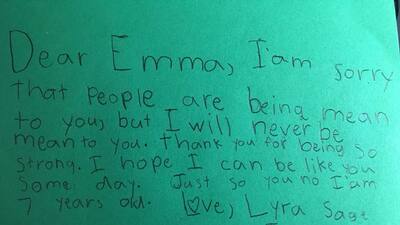 Dear Emma, I'am sorry
that people are being mean
to you, but I will never be
mean to you. Thank you for being so
strong. I hope I can be like you
some day. Just so you no I'am
7 years old. Love, Lyra Sage